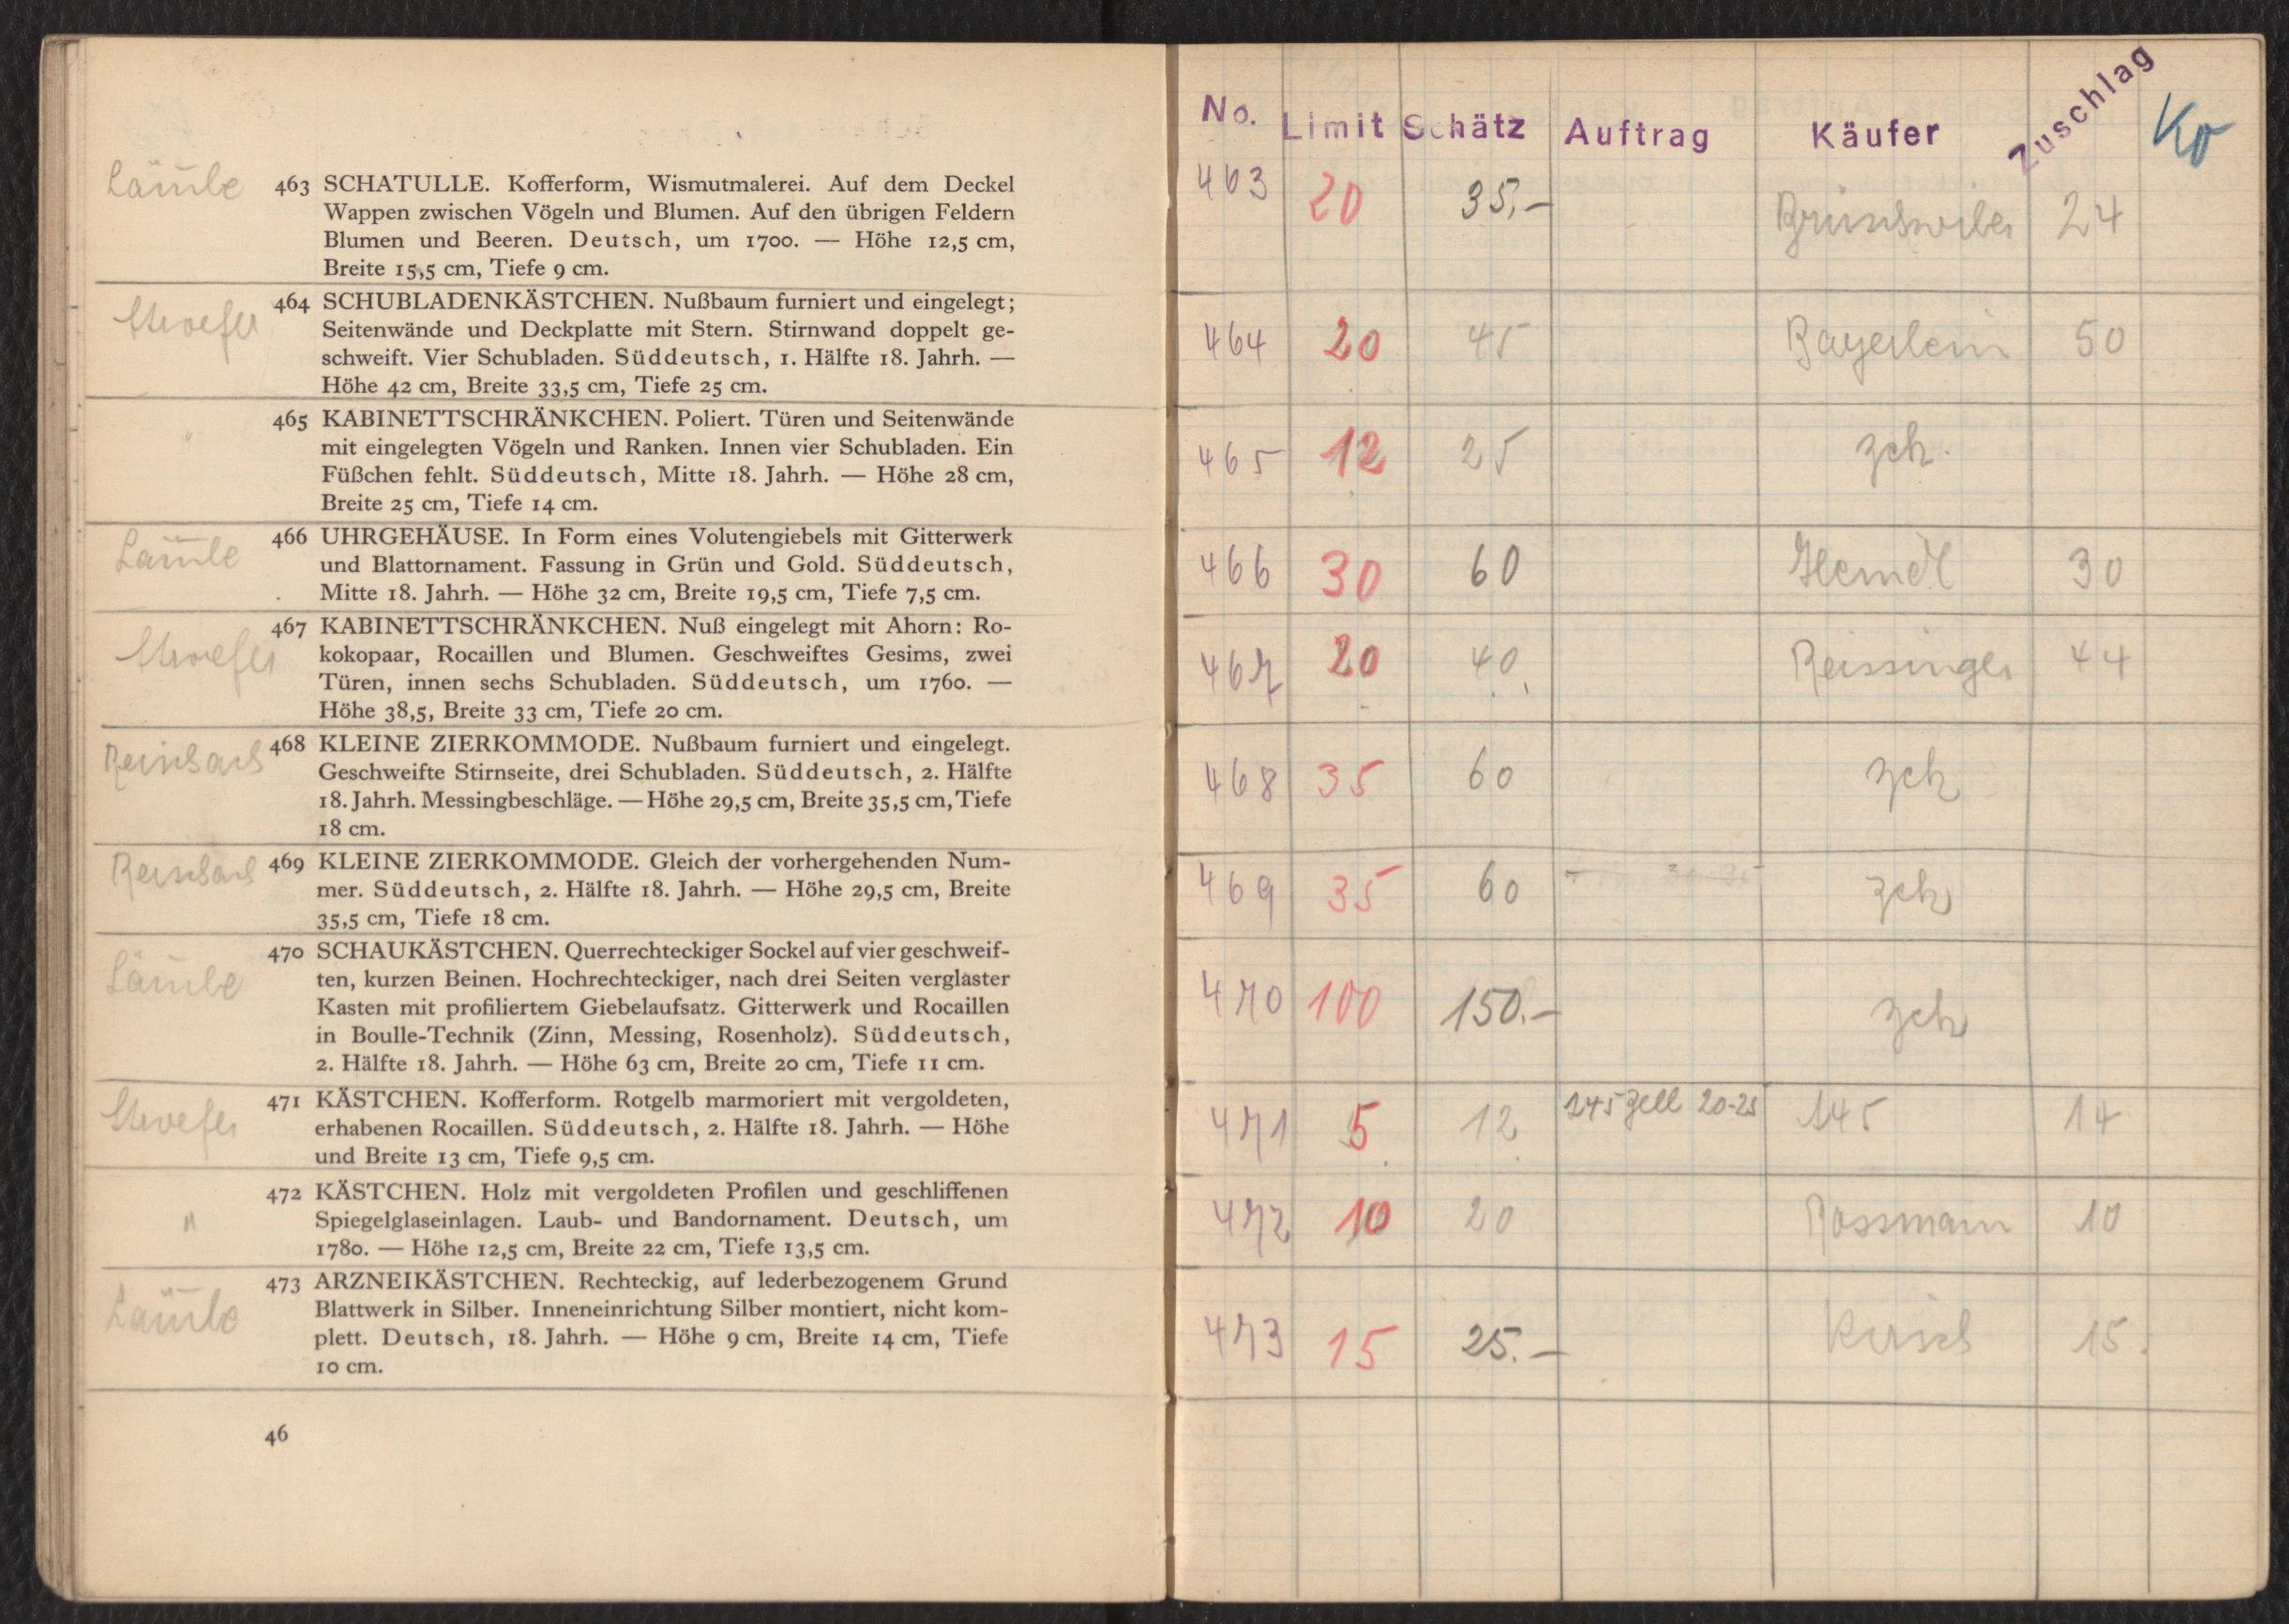 Läuile
463 SCHATULLE. Kofferform, Wismutmalerei. Auf dem Deckel
Wappen zwischen Vögeln und Blumen. Auf den übrigen Feldern
Blumen und Beeren. Deutsch, um 1700. — Höhe 12,5 cm,
Breite 15,5 cm, Tiefe 9 cm.
464 SCHUBLADENKÄSTCHEN. Nußbaum furniert und eingelegt;
Seitenwände und Deckplatte mit Stern. Stirnwand doppelt ge-
schweift. Vier Schubladen. Süddeutsch, 1. Hälfte 18. Jahrh. —
Höhe 42 cm, Breite 33,5 cm, Tiefe 25 cm.
"
465 KABINETTSCHRÄNKCHEN. Poliert. Türen und Seitenwände
mit eingelegten Vögeln und Ranken. Innen vier Schubladen. Ein
Füßchen fehlt. Süddeutsch, Mitte 18. Jahrh. — Höhe 28 cm,
Breite 25 cm, Tiefe 14 cm.
466 UHRGEHÄUSE. In Form eines Volutengiebels mit Gitterwerk
und Blattornament. Fassung in Grün und Gold. Süddeutsch,
Mitte 18. Jahrh. — Höhe 32 cm, Breite 19,5 cm, Tiefe 7,5 cm.
467 KABINETTSCHRÄNKCHEN. Nuß eingelegt mit Ahorn: Ro-
kokopaar, Rocaillen und Blumen. Geschweiftes Gesims, zwei
Türen, innen sechs Schubladen. Süddeutsch, um 1760. —
Höhe 38,5, Breite 33 cm, Tiefe 20 cm.
468 KLEINE ZIERKOMMODE. Nußbaum furniert und eingelegt.
Geschweifte Stirnseite, drei Schubladen. Süddeutsch, 2. Hälfte
18. Jahrh. Messingbeschläge. — Höhe 29,5 cm, Breite 35,5 cm, Tiefe
18 cm.
469 KLEINE ZIERKOMMODE. Gleich der vorhergehenden Num-
mer. Süddeutsch, 2. Hälfte 18. Jahrh. — Höhe 29,5 cm, Breite
35,5 cm, Tiefe 18 cm.
470 SCHAUKÄSTCHEN. Querrechteckiger Sockel auf vier geschweif-
ten, kurzen Beinen. Hochrechteckiger, nach drei Seiten verglaster
Kasten mit profiliertem Giebelaufsatz. Gitterwerk und Rocaillen
in Boulle-Technik (Zinn, Messing, Rosenholz). Süddeutsch,
2. Hälfte 18. Jahrh. — Höhe 63 cm, Breite 20 cm, Tiefe 11 cm.
471 KÄSTCHEN. Kofferform. Rotgelb marmoriert mit vergoldeten,
erhabenen Rocaillen. Süddeutsch, 2. Hälfte 18. Jahrh. — Höhe
und Breite 13 cm, Tiefe 9,5 cm.
"
472 KÄSTCHEN. Holz mit vergoldeten Profilen und geschliffenen
Spiegelglaseinlagen. Laub- und Bandornament. Deutsch, um
1780. — Höhe 12,5 cm, Breite 22 cm, Tiefe 13,5 cm.
473 ARZNEIKÄSTCHEN. Rechteckig, auf lederbezogenem Grund
Blattwerk in Silber. Inneneinrichtung Silber montiert, nicht kom-
plett. Deutsch, 18. Jahrh. — Höhe 9 cm, Breite 14 cm, Tiefe
10 cm.
46
No. Limit Schätz Auftrag Käufer Zuschlag Ko
463 20 35,– 24
464 20 45 Bayerlein 50
465 12 25 zch.
466 30 60 30
467 20 40 Reissinger 44
468 35 60 zch
469 35 60 zch
470 100 150.– zch
471 5 12 145 Zell 20-25 145 14
472 10 20 Rossmann 10
473 15 25.– Kirsch 15.